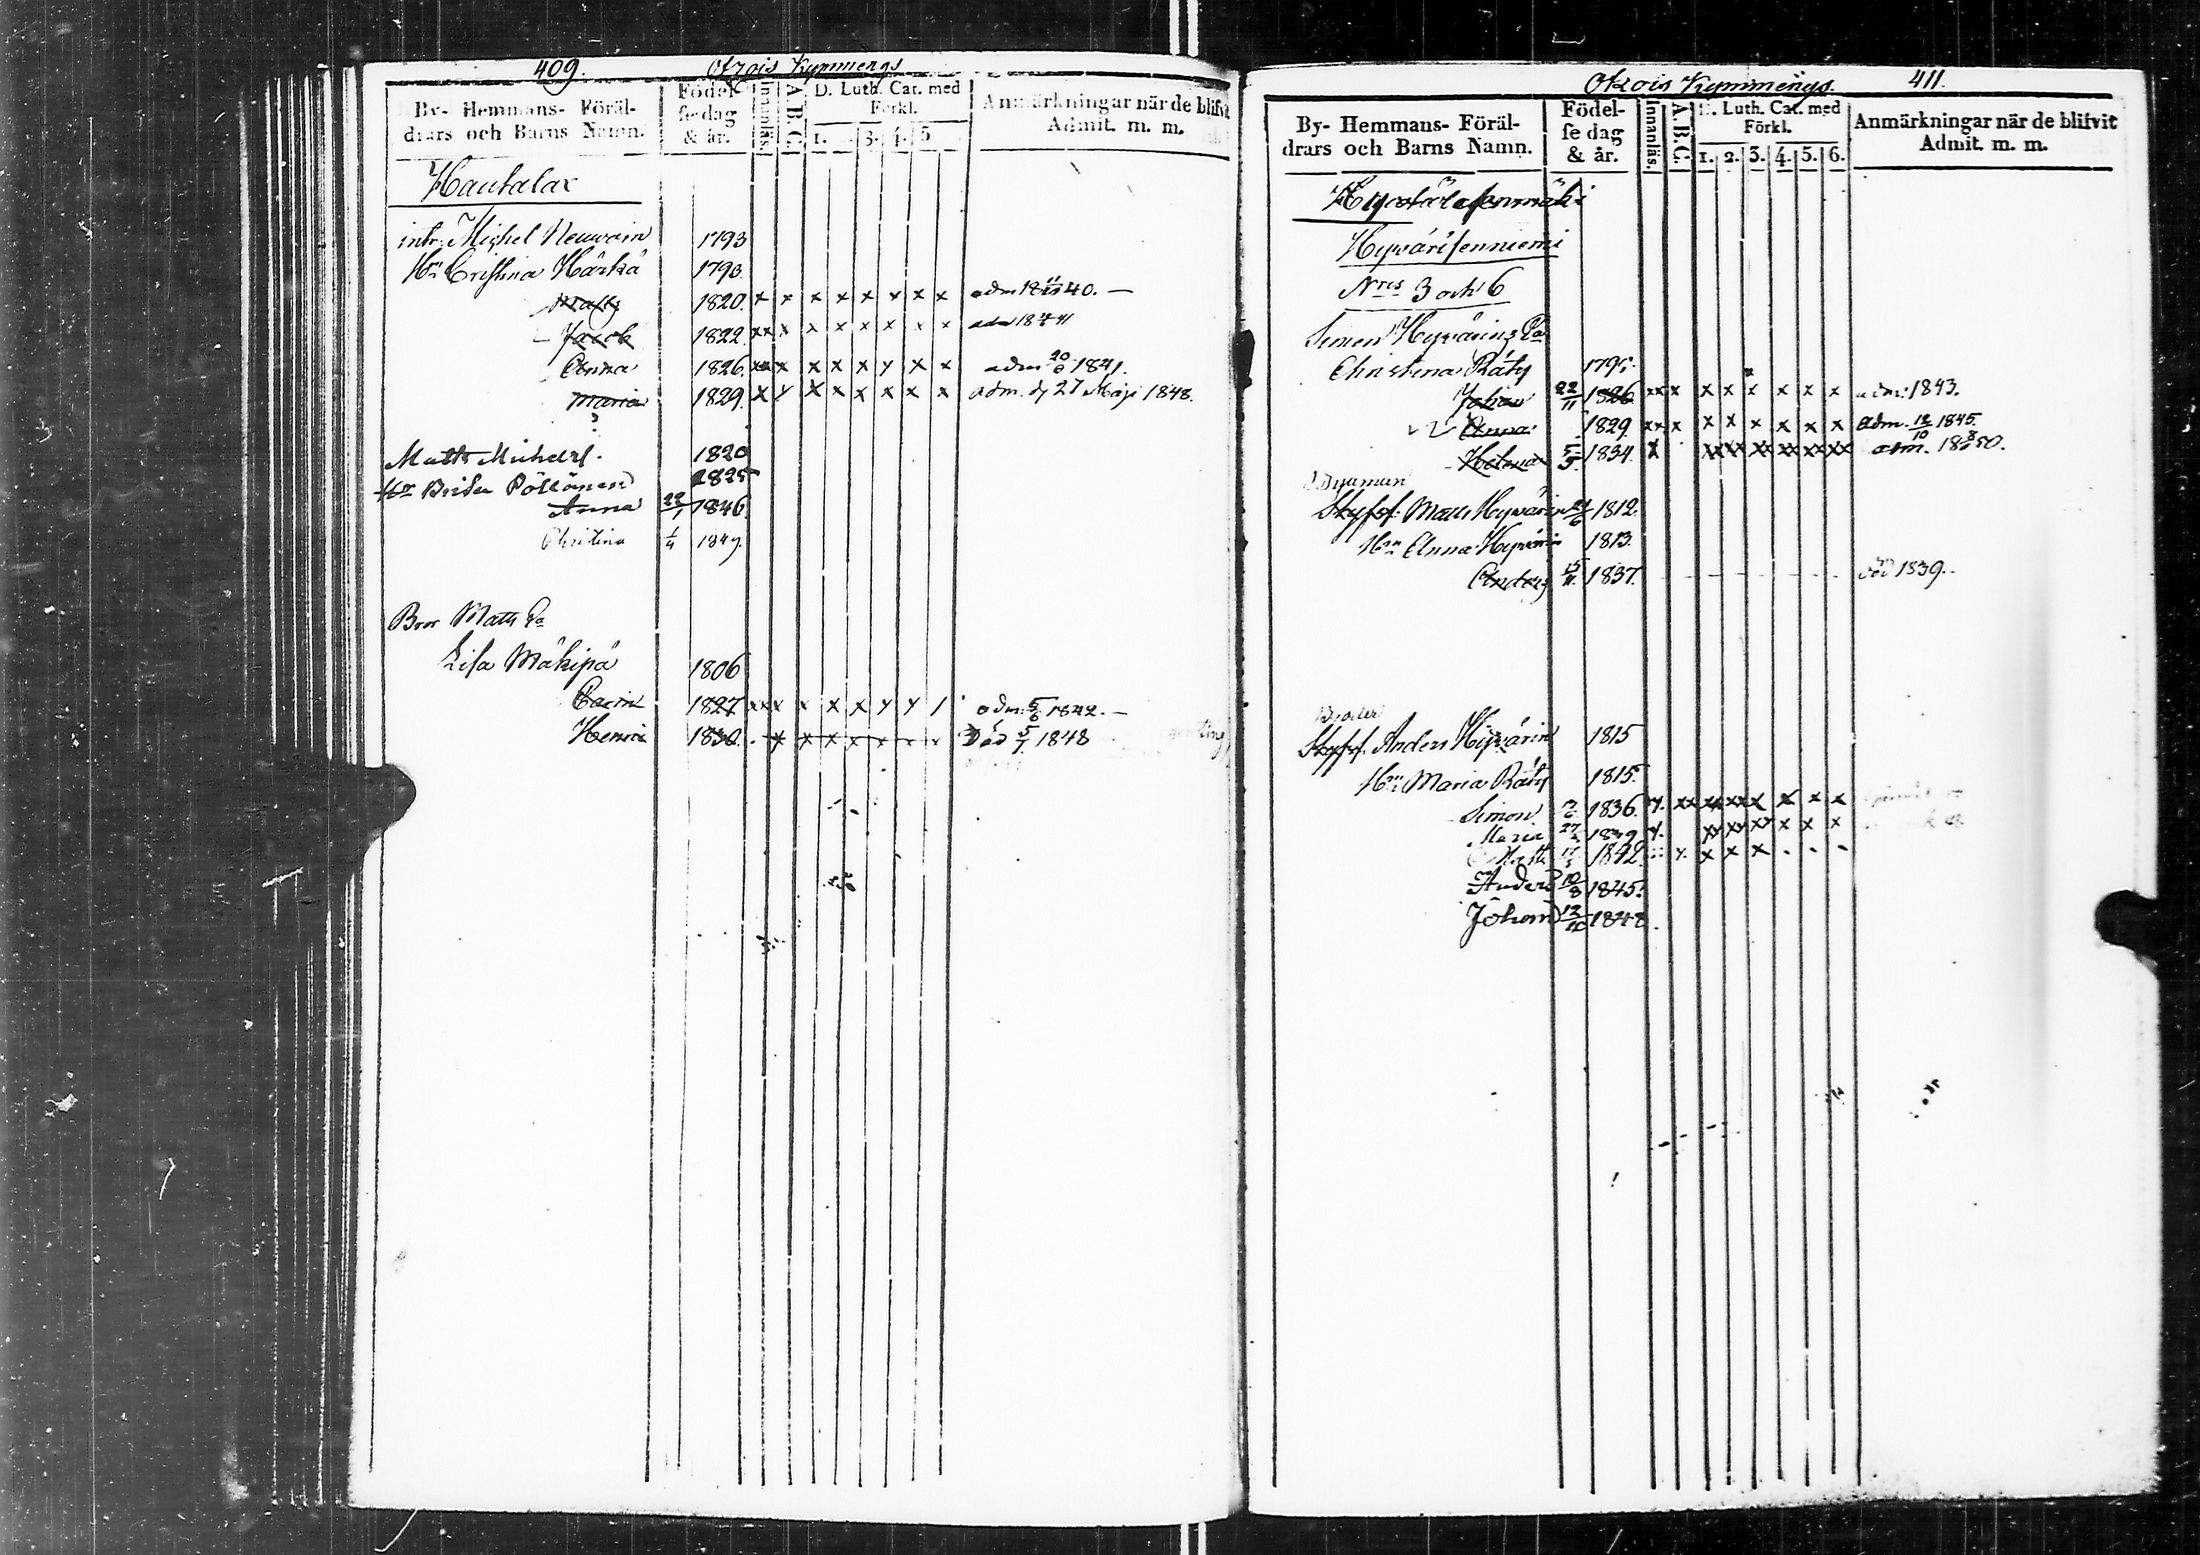 409.
Okrois Kymmengs
By- Hemmans- Föräl-
drars och Barns Namn.
Födel-
se dag
& år.
Innanläs.
A.B.C.
D. Luth. Cat. med
Förkl.
1. 3. 4. 5
Anmärkningar när de blifvit
Admit. m. m.
Hautalax
Michel 1793
Hu Cristina Härkä 1793
Matts 1820. x x x x x x x x
Jacob 1822 xx x x x x x x x
Anna 1826. xxx x x x x y x x adm 20/6 1841.
Maria 1829. x y x x x x x x adm. d 27 Maji 1848.
Matts Michelss. 1820
Hu Brita Pöllönen 1825
Anna 22/1 1846.
Christina 1/4 1849.
Bror Matts Ea
Lisa Mäkipä 1806
Carin 1827 xxx x x x y y / adm 5/6 1842. —
Henric 1830. x x x x x x x Död 5/7 1848
Okrois Kymmengs.
411.
By- Hemmans- Föräl-
drars och Barns Namn.
Födel-
se dag
& år.
Innanläs.
A.B.C.
D. Luth. Cat. med
Förkl.
1. 2. 3. 4. 5. 6.
Anmärkningar när de blifvit
Admit. m. m.
Hyvärisenniemi
Nris 3 och 6
Simon Hyvärins Ea
Christina Räty 1795.
Johan 22/11 1826 xxx x x x x x x adm: 1843.
Anna 1829. xxx x x x x x x adm. 12/10 1845.
Helena 5/5 1834. x xx xx xx xx xx xx adm. 18 50.
Matts Hyvärin 24/6 1812.
Hu Anna Hyvärin 1813.
Anders 15/11 1837. död 1839.
Broder
Anders Hyvärin 1815
Hu Maria Räty 1815.
Simon 1836. x. xx xx xx x x x x
Maria 1839 x. xy xy xy x x x
Matts 1842. y. x x x . . -
Anders 10/8 1845.
Johan 12/10 1848.